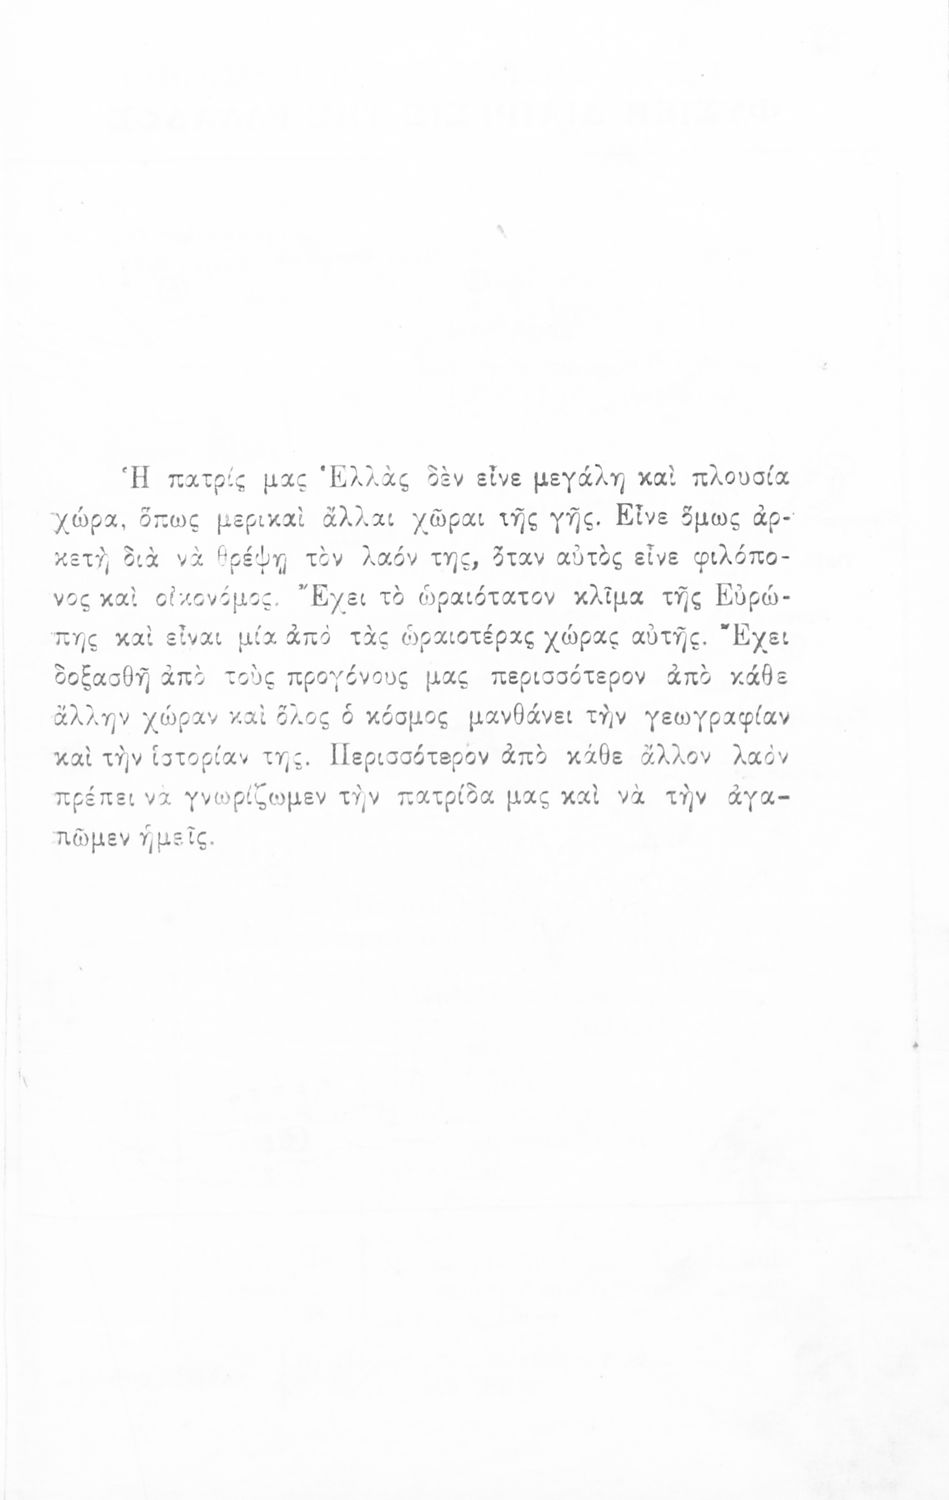 Ἡ πατρίς μας Ἑλλὰς δὲν εἶνε μεγάλη καὶ πλουσία
χώρα, ὅπως μερικαὶ ἄλλαι χῶραι τῆς γῆς. Εἶνε ὅμως ἀρ-
κετὴ διὰ νὰ θρέψῃ τὸν λαόν της, ὅταν αὐτὸς εἶνε φιλόπο-
νος καὶ οἰκονόμος. Ἔχει τὸ ὡραιότατον κλῖμα τῆς Εὐρώ-
πης καὶ εἶναι μία ἀπὸ τὰς ὡραιοτέρας χώρας αὐτῆς. Ἔχει
δοξασθῆ ἀπὸ τοὺς προγόνους μας περισσότερον ἀπὸ κάθε
ἄλλην χώραν καὶ ὅλος ὁ κόσμος μανθάνει τὴν γεωγραφίαν
καὶ τὴν ἱστορίαν της. Περισσότερον ἀπὸ κάθε ἄλλον λαὸν
πρέπει νὰ γνωρίζωμεν τὴν πατρίδα μας καὶ νὰ τὴν ἀγα-
πῶμεν ἡμεῖς.